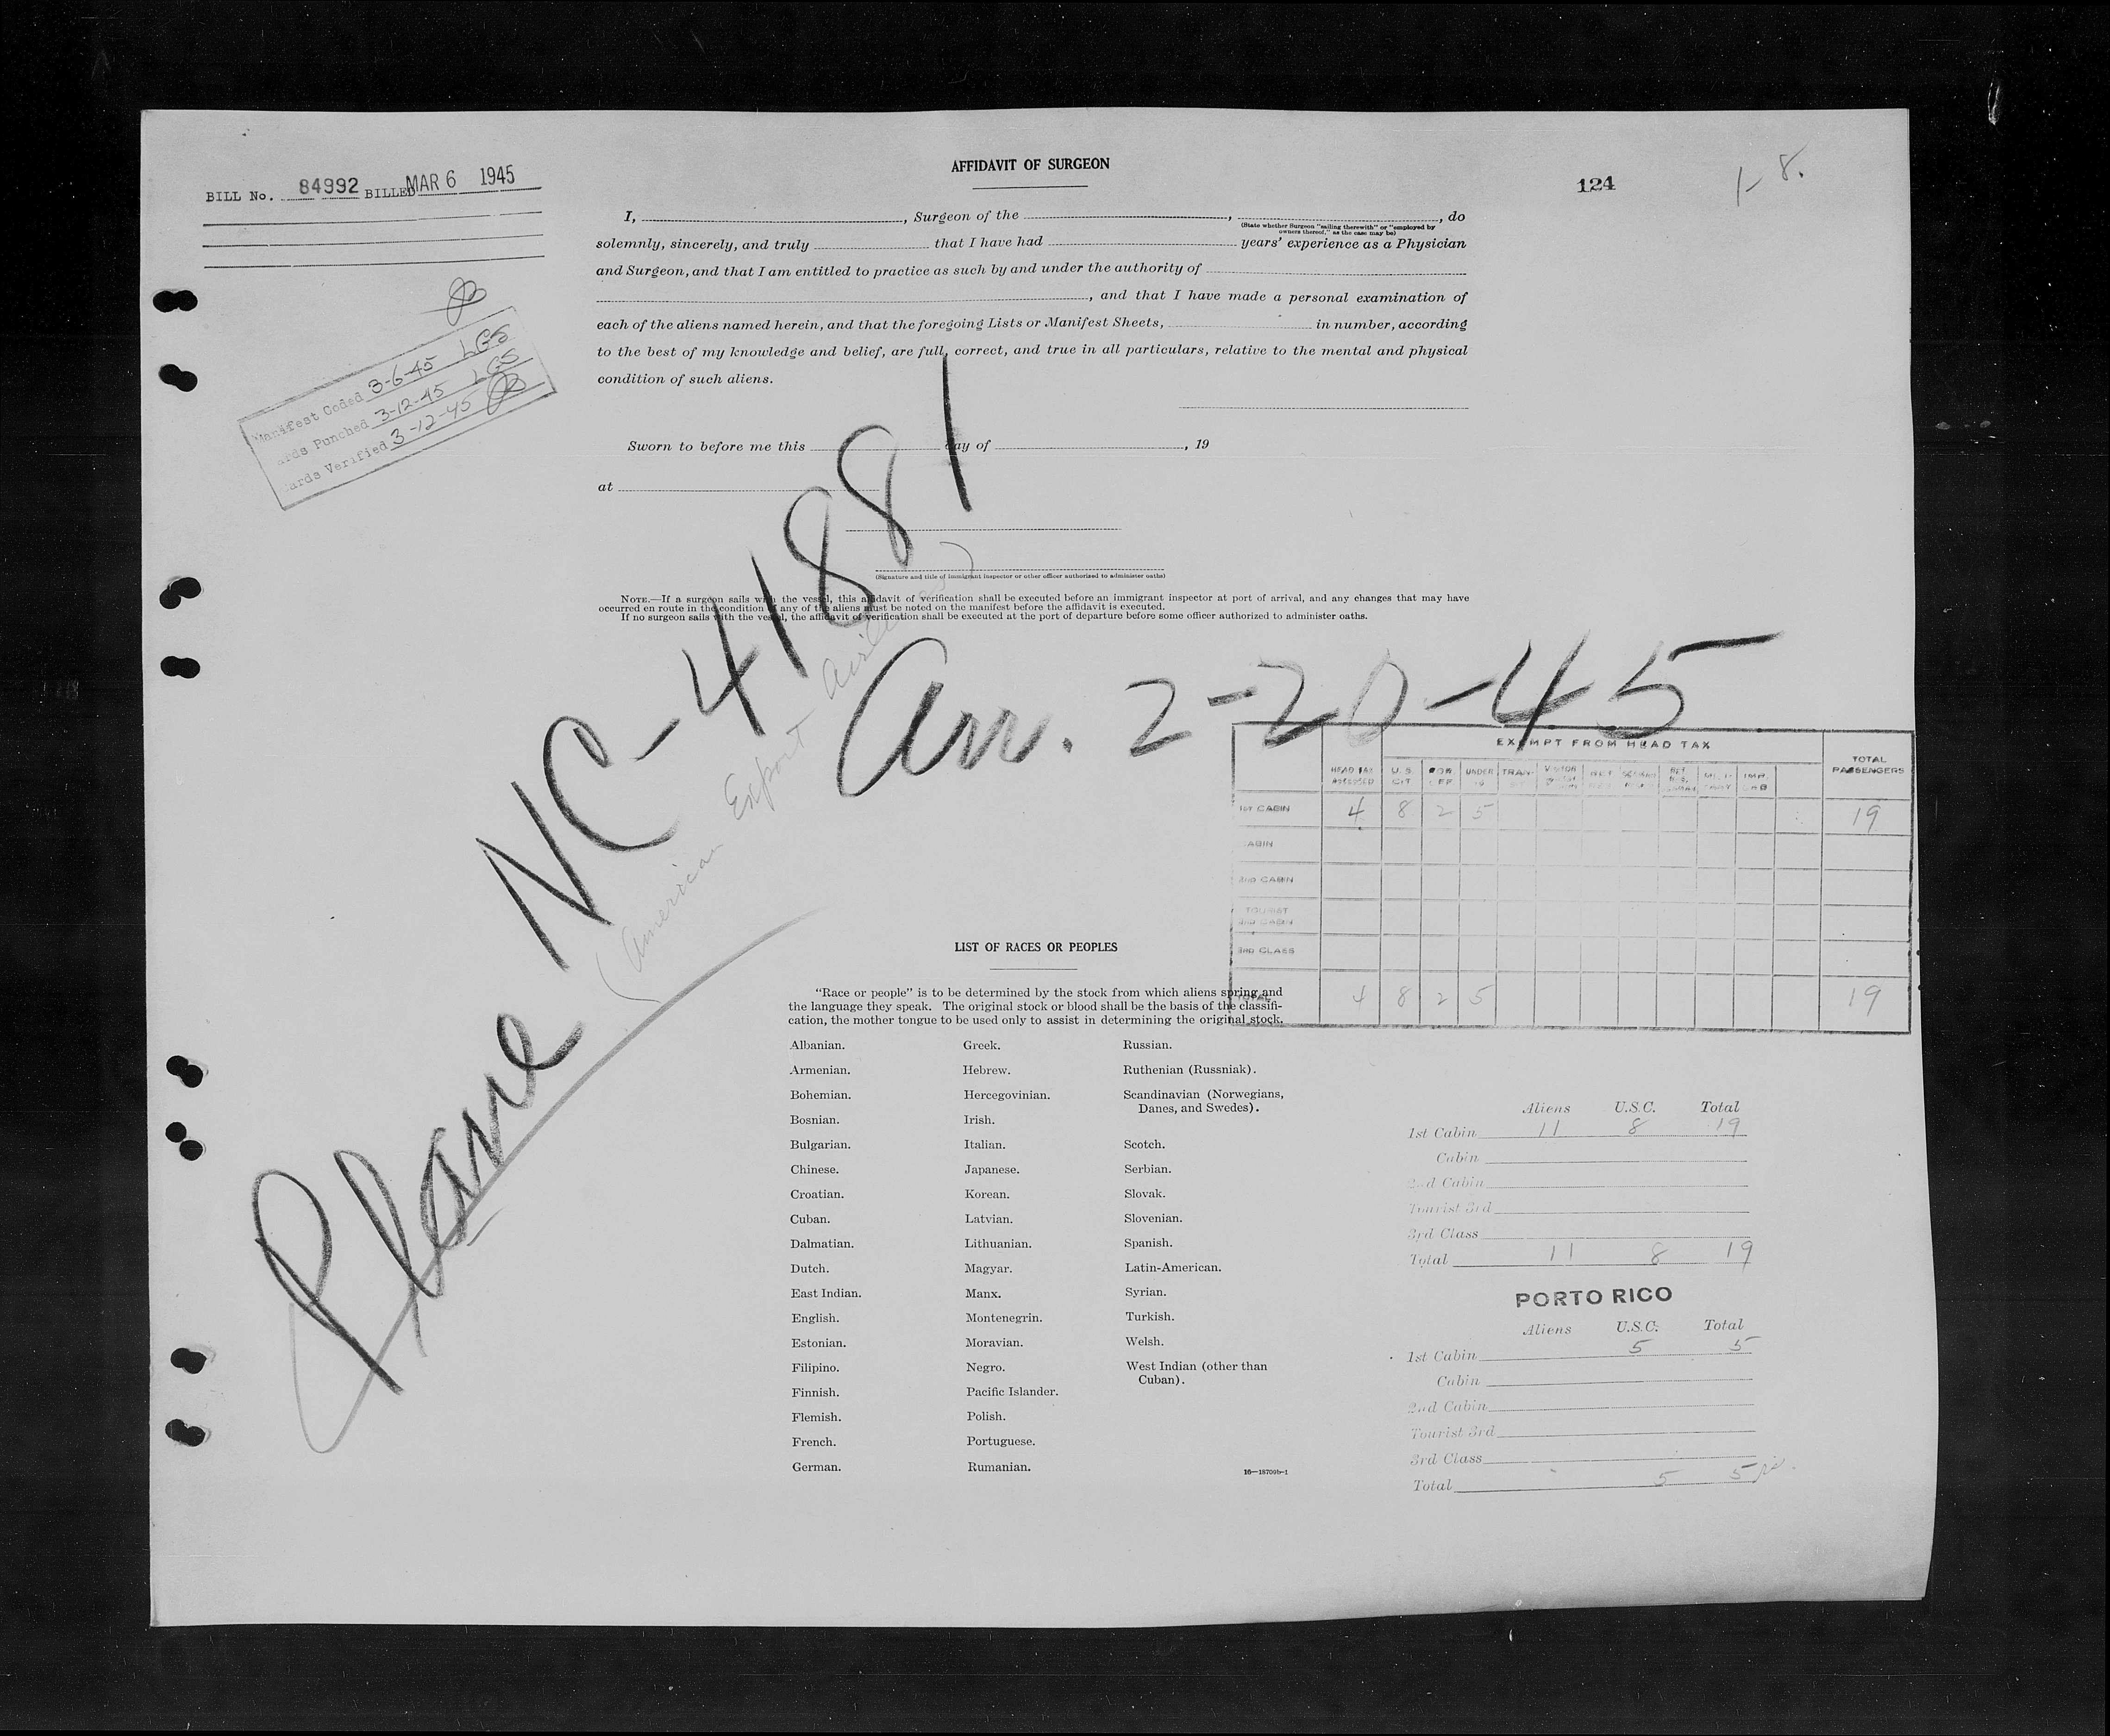 AFFIDAVIT OF SURGEON
BILL No. 84992 BILLED MAR 6 1945
124
1-8.
I, , Surgeon of the , , do
(State whether Surgeon "sailing therewith" or "employed by
owners thereof," as the case may be)
solemnly, sincerely, and truly that I have had years' experience as a Physician
and Surgeon, and that I am entitled to practice as such by and under the authority of
, and that I have made a personal examination of
each of the aliens named herein, and that the foregoing Lists or Manifest Sheets, in number, according
to the best of my knowledge and belief, are full, correct, and true in all particulars, relative to the mental and physical
condition of such aliens.
Manifest Coded 3-6-45 LGS
ards Punched 3-12-45 LGS
ards Verified 3-12-45
Sworn to before me this day of , 19
at
(Signature and title of immigrant inspector or other officer authorized to administer oaths)
NOTE.—If a surgeon sails with the vessel, this affidavit of verification shall be executed before an immigrant inspector at port of arrival, and any changes that may have
occurred en route in the condition of any of the aliens must be noted on the manifest before the affidavit is executed.
If no surgeon sails with the vessel, the affidavit of verification shall be executed at the port of departure before some officer authorized to administer oaths.
Plane NC-41881
(American Export Airlines)
Arr. 2-20-45
EXEMPT FROM HEAD TAX
HEAD TAX ASSESSED U.S. CIT UNDER 16 TRAN TOTAL PASSENGERS
1ST CABIN 4 8 2 5 19
CABIN
2ND CABIN
TOURIST
3RD CABIN
3RD CLASS
TOTAL 4 8 2 5 19
LIST OF RACES OR PEOPLES
"Race or people" is to be determined by the stock from which aliens spring and
the language they speak. The original stock or blood shall be the basis of the classifi-
cation, the mother tongue to be used only to assist in determining the original stock.
Albanian.
Armenian.
Bohemian.
Bosnian.
Bulgarian.
Chinese.
Croatian.
Cuban.
Dalmatian.
Dutch.
East Indian.
English.
Estonian.
Filipino.
Finnish.
Flemish.
French.
German.
Greek.
Hebrew.
Hercegovinian.
Irish.
Italian.
Japanese.
Korean.
Latvian.
Lithuanian.
Magyar.
Manx.
Montenegrin.
Moravian.
Negro.
Pacific Islander.
Polish.
Portuguese.
Rumanian.
Russian.
Ruthenian (Russniak).
Scandinavian (Norwegians,
Danes, and Swedes).
Scotch.
Serbian.
Slovak.
Slovenian.
Spanish.
Latin-American.
Syrian.
Turkish.
Welsh.
West Indian (other than
Cuban).
16—18709b-1
Aliens U.S.C. Total
1st Cabin 11 8 19
Cabin
2nd Cabin
Tourist 3rd
3rd Class
Total 11 8 19
PORTO RICO
Aliens U.S.C. Total
1st Cabin 5 5
Cabin
2nd Cabin
Tourist 3rd
3rd Class
Total 5 5